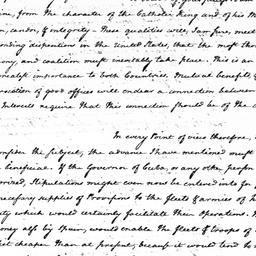 ine, from the character of the Catholic King and of his M
n, candor, & integrity. These qualities will, I am sure, meet
onding dispositions in the United States, that the most tho
ony, and coalition must inevitably take place. This is an
reatest importance to both Countries. Mutual benefits, &
rocation of good offices will endear a connection between
Interests require that this connection should be of the c
In every Point of view therefore,
onsider the subject, the advance I have mentioned must
beneficial. If the Governor of Cuba, or any other person
orised, Stipulations might even now be entered into for
necessary supplies of Provisions to the fleet & armies of h
ty which would certainly facilitate their Operations.
ney also by Spain, would enable the fleets & troops of
ist cheaper than at present; because it would tend to